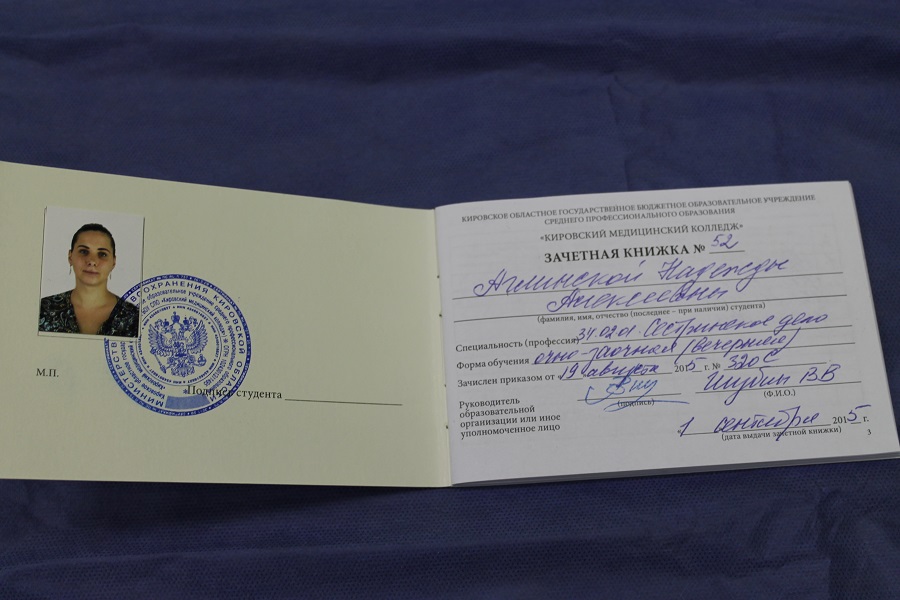 М.П.
Подпись студента
КИРОВСКОЕ ОБЛАСТНОЕ ГОСУДАРСТВЕННОЕ БЮДЖЕТНОЕ ОБРАЗОВАТЕЛЬНОЕ УЧРЕЖДЕНИЕ
СРЕДНЕГО ПРОФЕССИОНАЛЬНОГО ОБРАЗОВАНИЯ
«КИРОВСКИЙ МЕДИЦИНСКИЙ КОЛЛЕДЖ»
ЗАЧЕТНАЯ КНИЖКА № 52
Надежды
Алексеевны
(фамилия, имя, отчество (последнее – при наличии) студента)
Специальность (профессия) 34.02.01. Сестринское дело
Форма обучения очно-заочная (вечерняя)
Зачислен приказом от «19» августа 2015 г. № 320 С
Руководитель
образовательной
организации или иное
уполномоченное лицо
(подпись)
Шубин В В
(Ф.И.О.)
«1 сентября 2015 г.
(дата выдачи зачетной книжки)
3